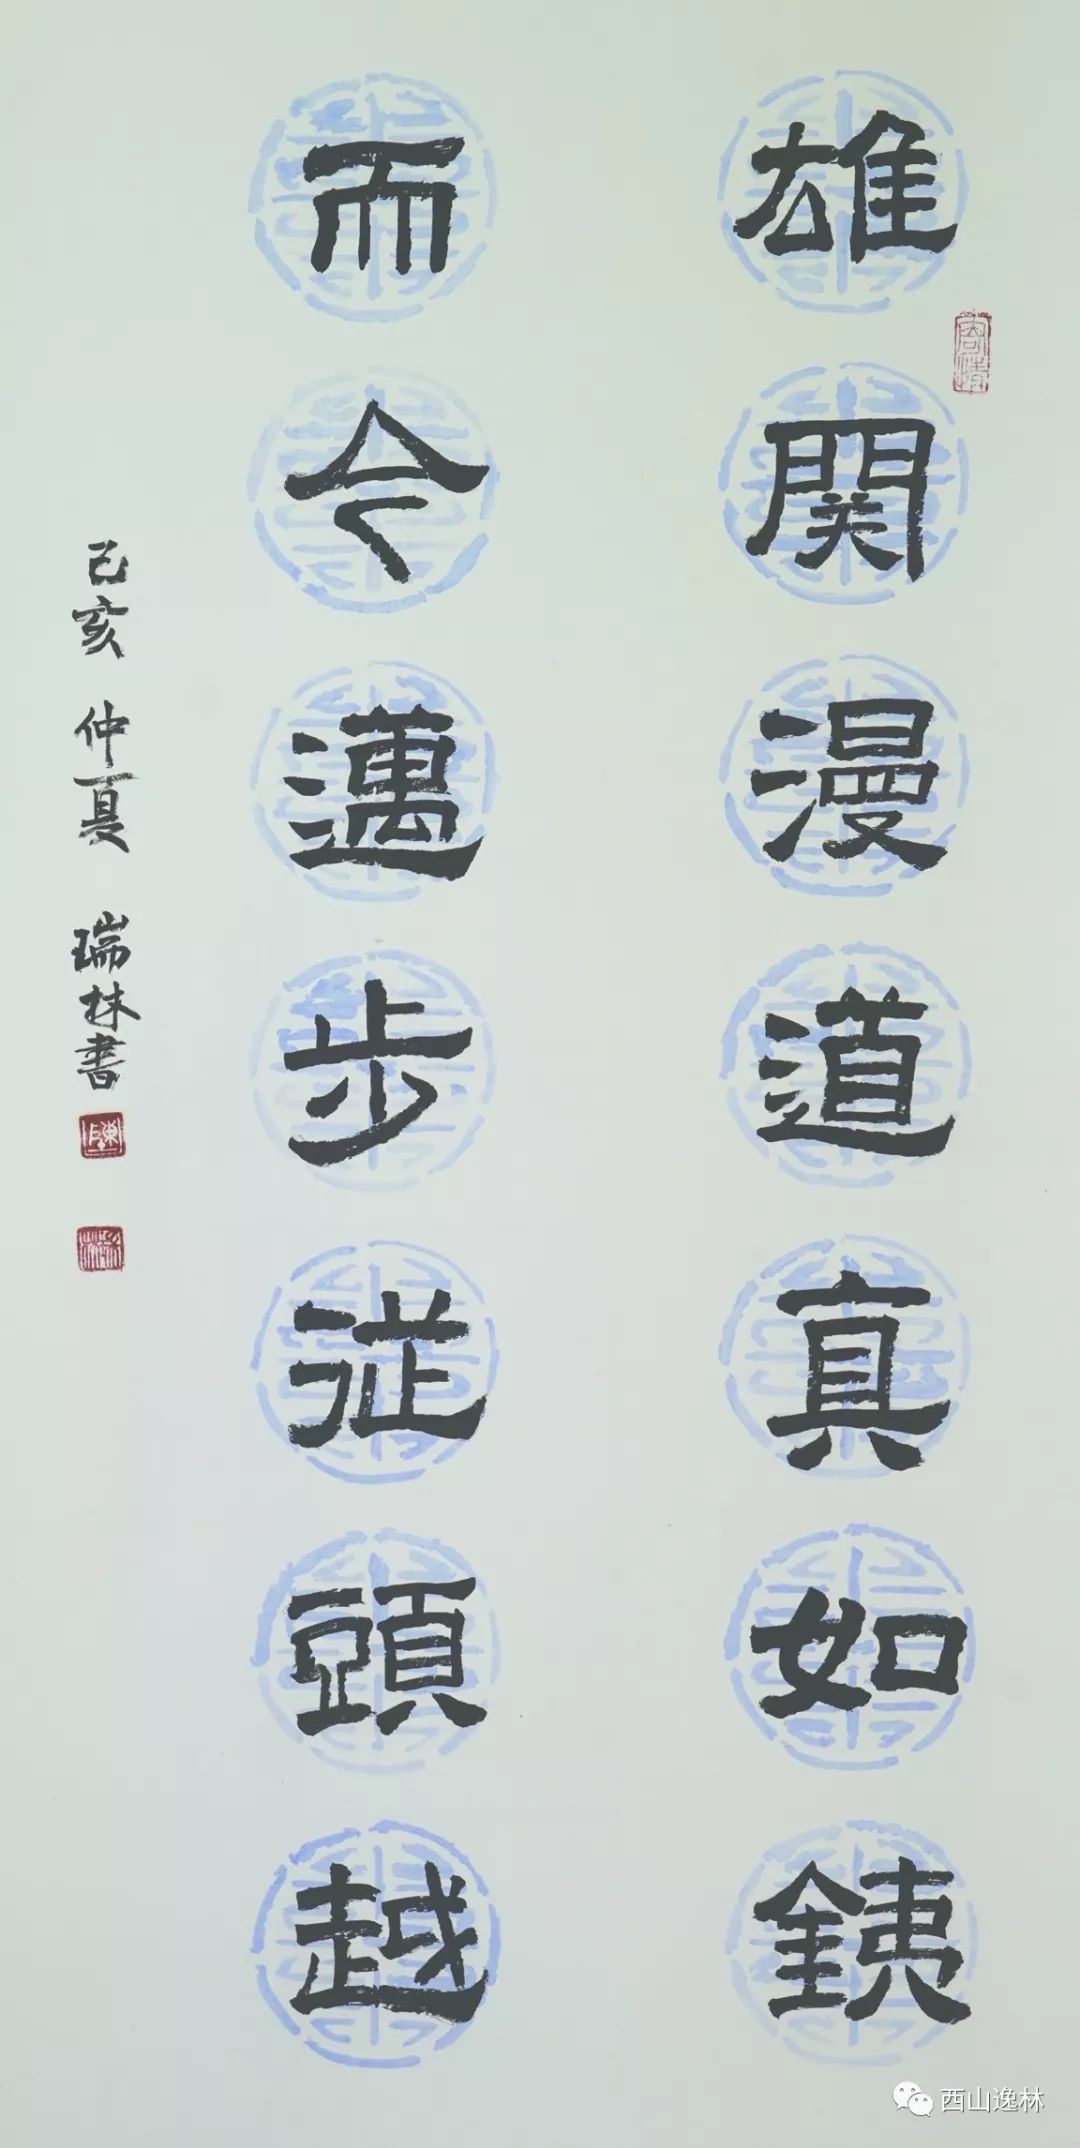 雄関漫道真如銕
而今邁步従頭越
己亥 仲夏 瑞林書
寄情
西山逸林